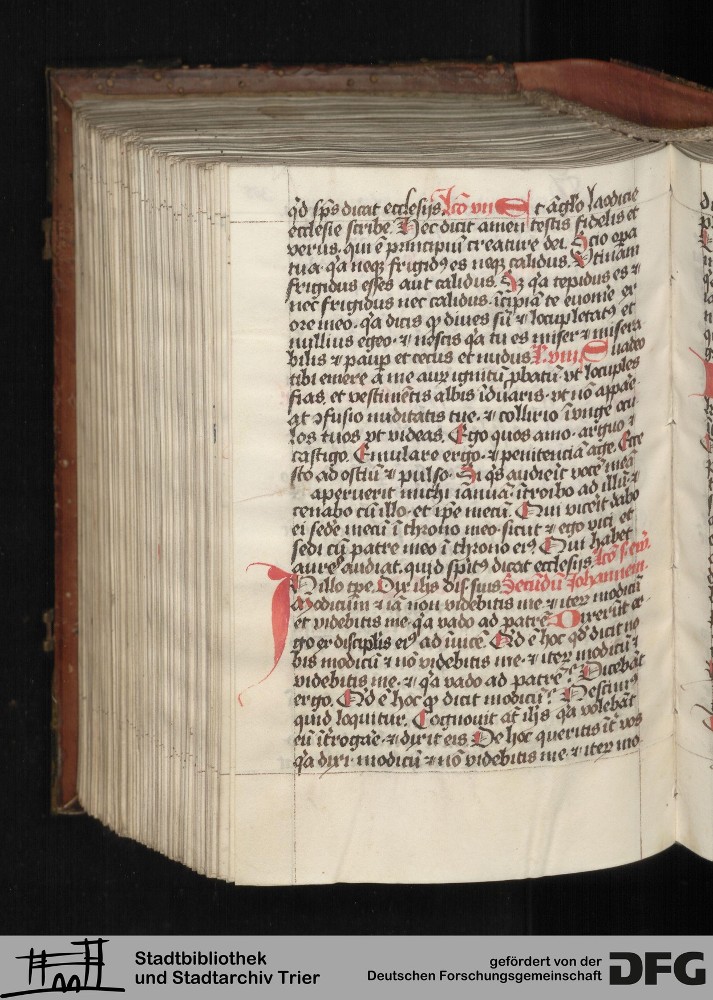 qd sps dicat ecclesijs. Lcō viii Et āgło laodicie
ecclesie scribe. Hec dicit amen testis fidelis et
verus. qui ē principiū creature dei. Scio opa
tua. qa neqz frigidꝯ es neqz calidus. Vtinam
frigidus esses aut calidus. Sz qa tepidus es ⁊
nec frigidus nec calidus. īcipiā te euome er
ore meo. qa dicis qp diues sū ⁊ locupletatꝯ et
nullius egeo. ⁊ nescis qa tu es miser ⁊ misera
bilis ⁊ paup et cecus et nudus L. viii. Suadeo
tibi emere a me aurꝝ ignitū pbatū. vt locuples
fias. et vestimētis albis īduaris. vt nō appāe
at ꝯfusio nuditatis tue. ⁊ collirio īunge ocu
los tuos vt videas. Ego quos amo. arguo ⁊
castigo. Emulare ergo. ⁊ penitenciā age. Ecce
sto ad ostiū ⁊ pulso. Si qs audieīt vocē meā
aperuerit michi ianuā. ītroibo ad illū. ⁊
cenabo cū illo. et ipe mecū. Qui viceīt dabo
ei sedē mecū ī throno meo. sicut ⁊ ego vici et
sedi cū patre meo ī throno eiꝯ Qui habet
aurē audiat. quid spūs dicat ecclesijs. Lcō s. ew.
In illo tpe. Dix ihs dis suis Secūdū Johannem.
Modicum ⁊ iā non videbitis me. ⁊ iterꝝ modicū
et videbitis me. qa vado ad patrē. Dixerūt er
go er disciplis eiꝯ ad īuicē. Qd ē hoc qd dicit no
bis modicū ⁊ nō videbitis me. ⁊ iterꝝ modicū ⁊
videbitis me. ⁊ qa vado ad patrē? Dicebāt
ergo. Qd ē hoc qp dicit modicū? Nescimꝯ
quid loquitur. Cognouit at ihs qa volebāt
eū ītrogāe. ⁊ dixit eis De hoc queritis īt vos
qa dixi. modicū ⁊ nō videbitis me. ⁊ iterꝝ mo
Stadtbibliothek
und Stadtarchiv Trier
gefördert von der
Deutschen Forschungsgemeinschaft
DFG